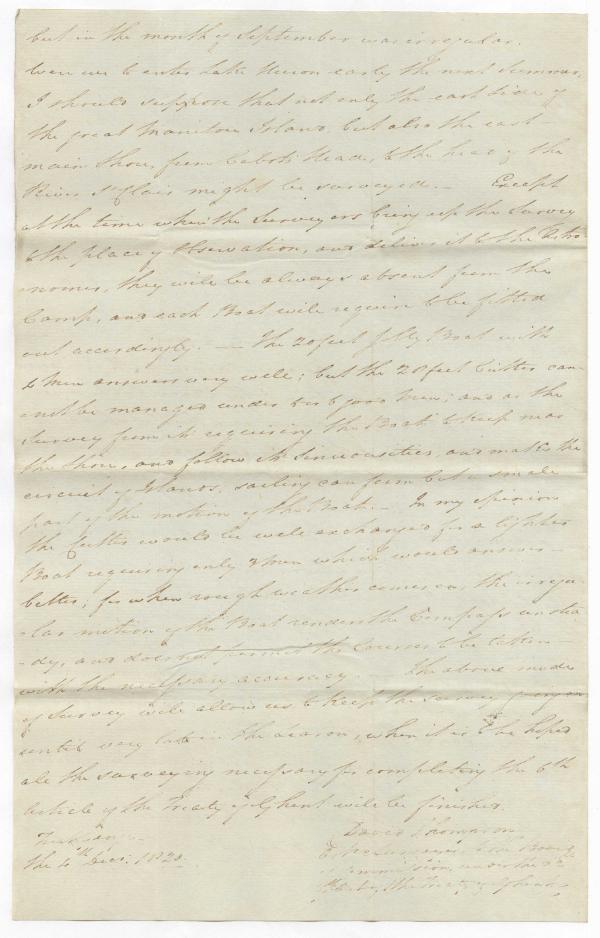 but in the month of September was irregular.
Were we to enter Lake Huron early the next Summer,
I should suppose that not only the east side of
the great Manitou Island, but also the east
main shore, from Cabots Head, to the head of the
River St Clair might be surveyed. – Except
at the time when the Surveyors bring up the Survey
to the place of Observation, and deliver it to the Astro
-nomer, they will be always absent from the
Camp, and each Boat will require to be fitted
out accordingly. – The 20 feet Boat with
4 Men answers very well; but the 28 feet Cutter can
-not be managed under good Men; and as the
Survey from it requiring the Boat to keep near
the shore, and follow its sinuosities, and make the
circuit of Islands, sailing can form but a small
part of the motion of the Boat. – In my opinion
the Cutter would be well exchanged for a lighter
Boat requiring only Men which would answer
better, for when rough weather comes on, the irregu
-lar motion of the Boat renders the Compass unstea
-dy, and does not permit the Courses to be taken
with the necessary accuracy. The above mode
of Survey will allow us to keep the survey going on
until very late in the season, when it is to be hoped
all the surveying necessary for completing the 6th
Article of the Treaty of Ghent will be finished.
David Thompson
the 4th Decr. 1820.
Surveyor to the Board
of Commission, under the
the Treaty of Ghent